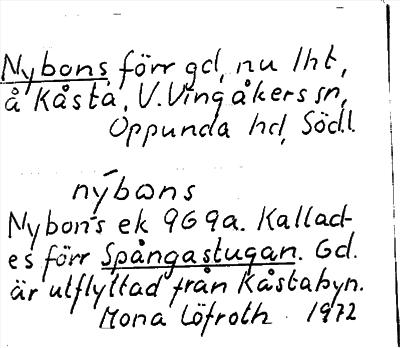 Nybons, förr gd, nu lht,
å Kåsta, V. Vingåkers sn,
Oppunda hd, Södl.
nýbωns
Nybons ek 969a. Kallad-
es förr Spångastugan. Gd.
är utflyttad från Kåstabyn.
Mona Löfroth 1972